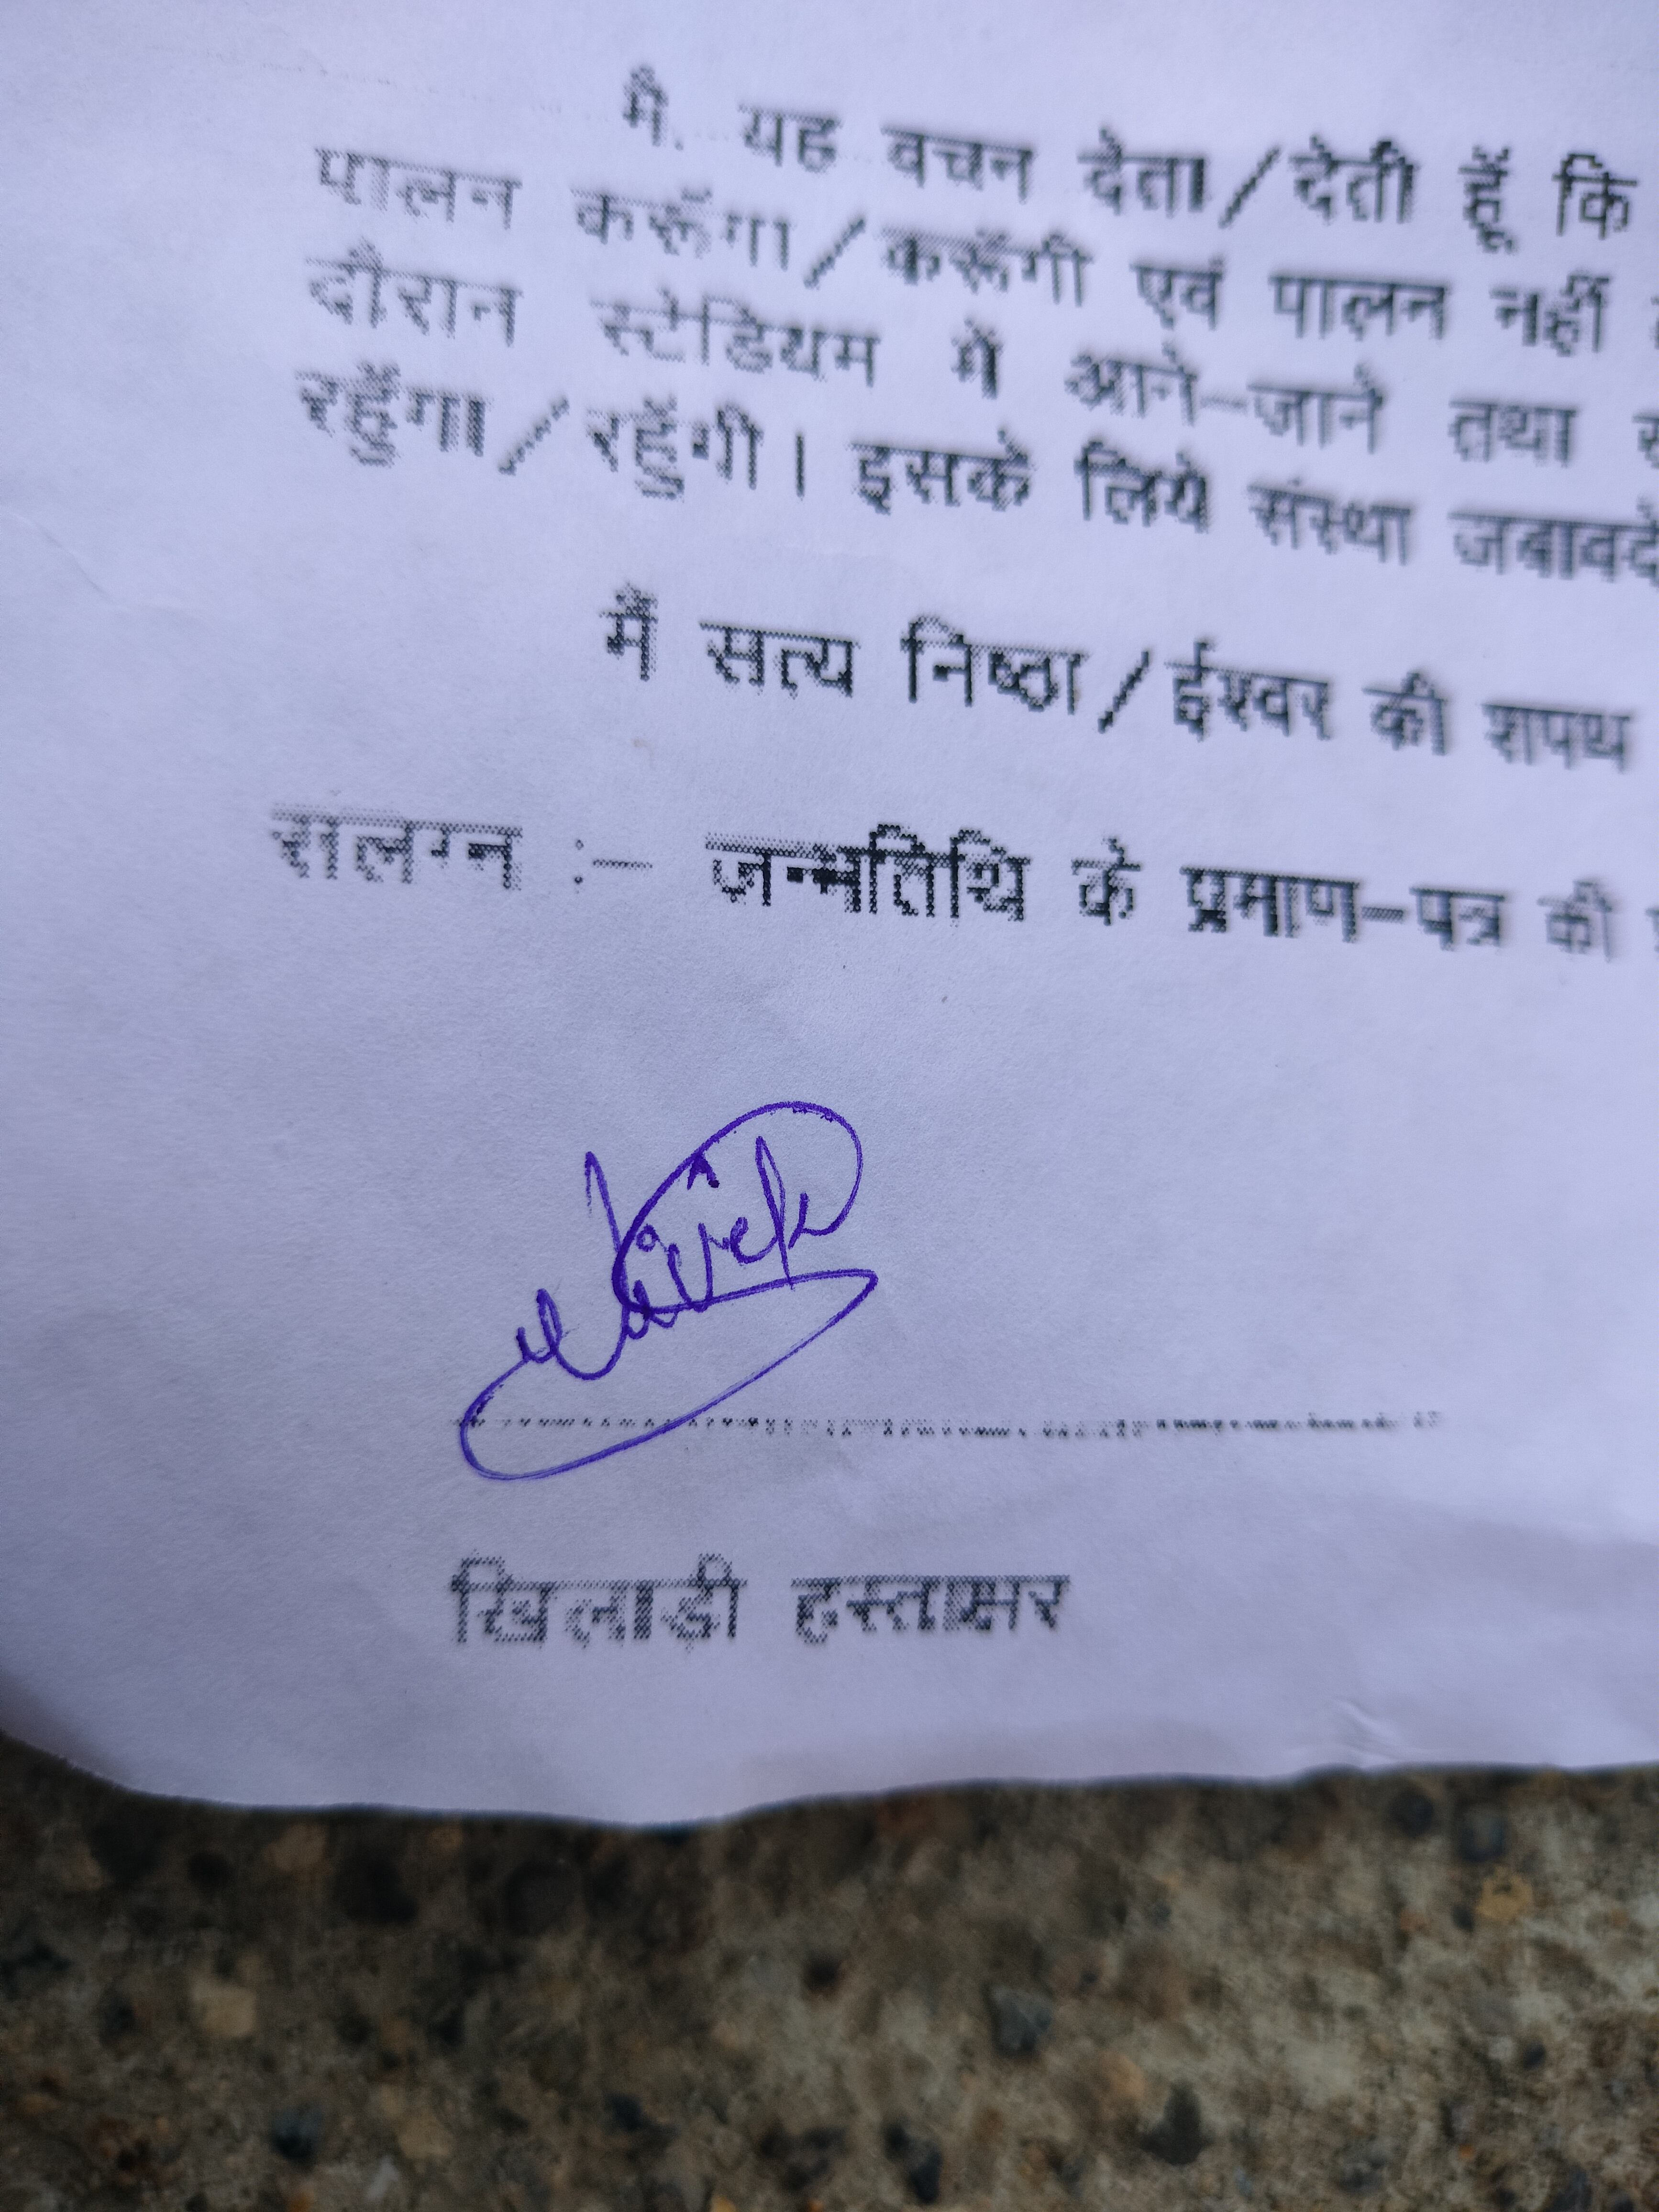 मै. यह वचन देता/देती हूँ कि
पालन करूँगा/करूँगी एवं पालन नहीं
दौरान स्टेडियम में आने-जाने तथा
रहुँगा/रहुँगी। इसके लिये संस्था जबावदे
मैं सत्य निष्ठा/ईश्वर की शपथ
संलग्न :- जन्मतिथि के प्रमाण-पत्र की
खिलाड़ी हस्ताक्षर